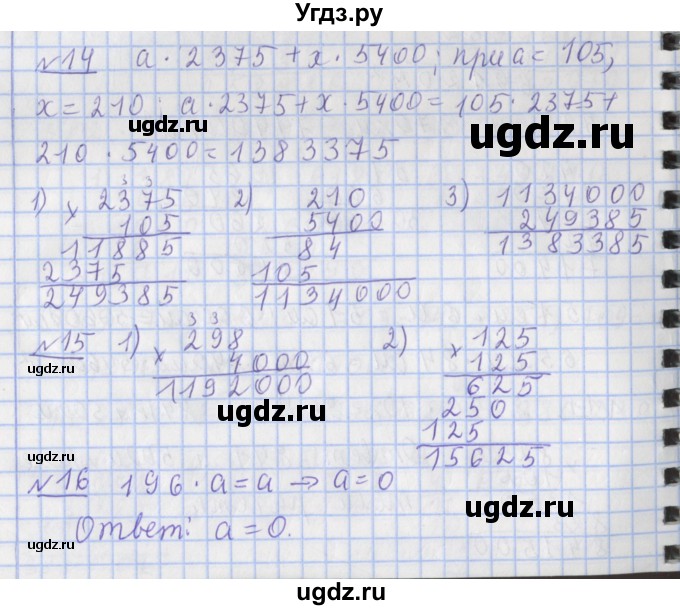 Угдз.ру
№14 a · 2375 + x · 5400; при a = 105,
x = 210; a · 2375 + x · 5400 = 105 · 2375 +
udgz.ru
210 · 5400 = 1383375
ugdz.ru
1) 2) 3)
3 3
× 2375
105
11885
2375
249385
210
5400
84
105
1134000
1134000
249385
1383385
№15 1) 2)
3 3
× 298
4000
1192000
× 125
125
625
250
125
15625
ugdz.ru
ugdz.ru
ugdz.ru
№16 196 · a = a → a = 0
ugdz.ru
Ответ: a = 0.
ugdz.ru
ugdz.ru